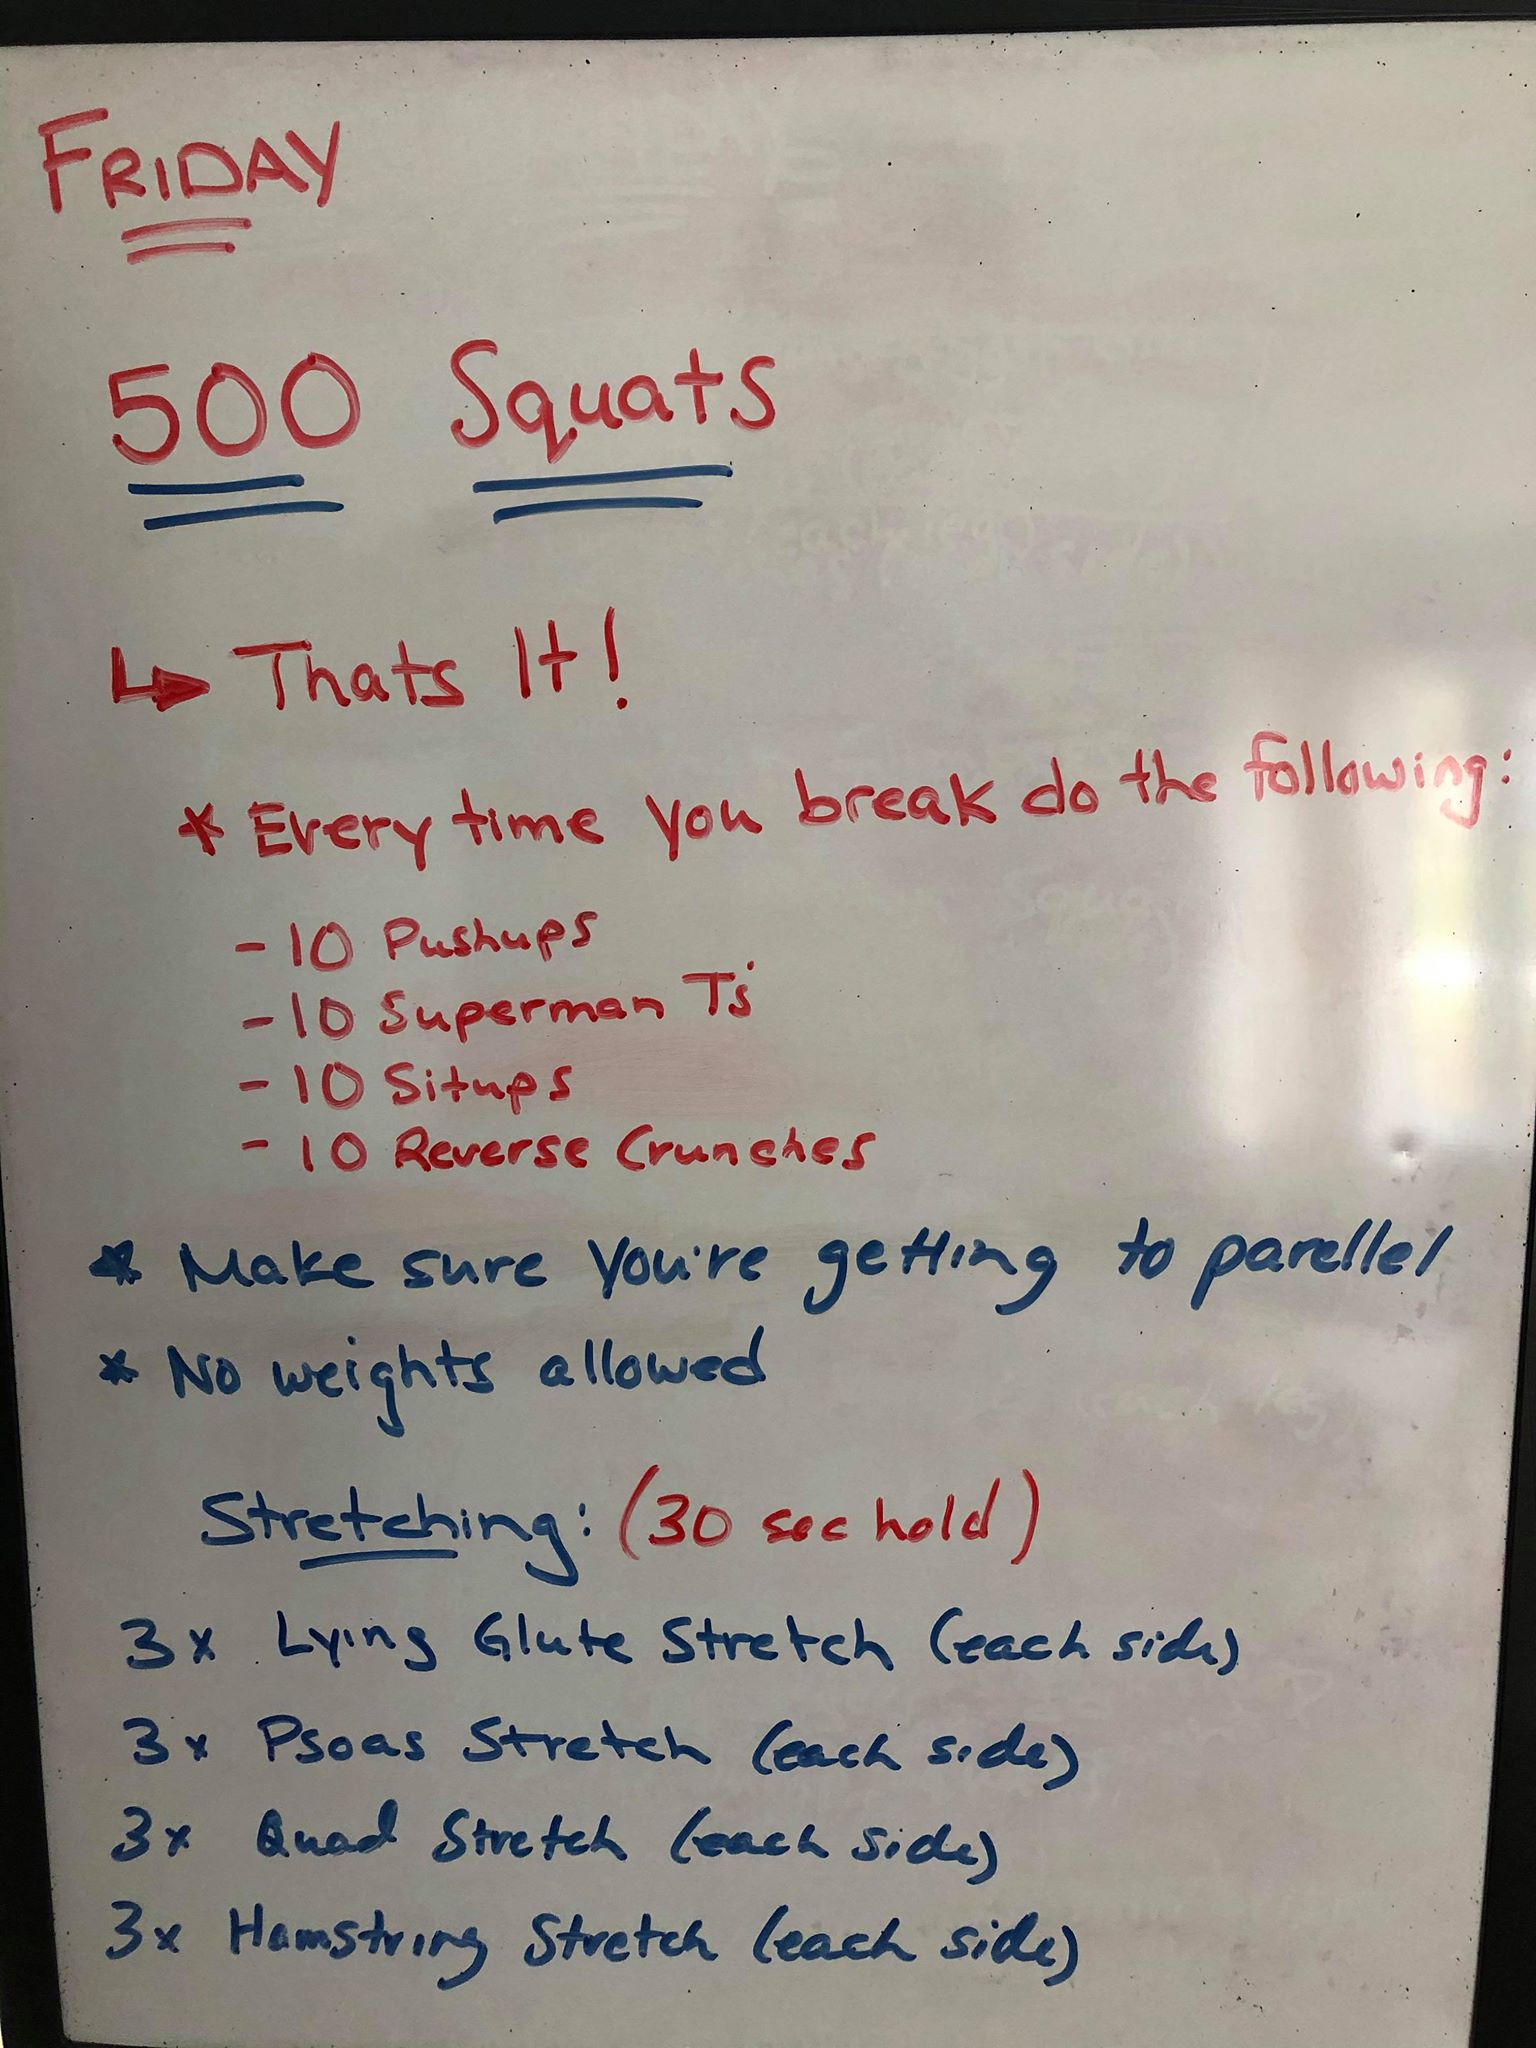 FRIDAY
500 Squats
↳ Thats It!
* Every time you break do the following:
- 10 Pushups
- 10 Superman T's
- 10 Situps
- 10 Reverse Crunches
* Make sure you're getting to parellel
* No weights allowed
Stretching: (30 sec hold)
3x Lying Glute Stretch (each side)
3x Psoas Stretch (each side)
3x Quad Stretch (each side)
3x Hamstring Stretch (each side)